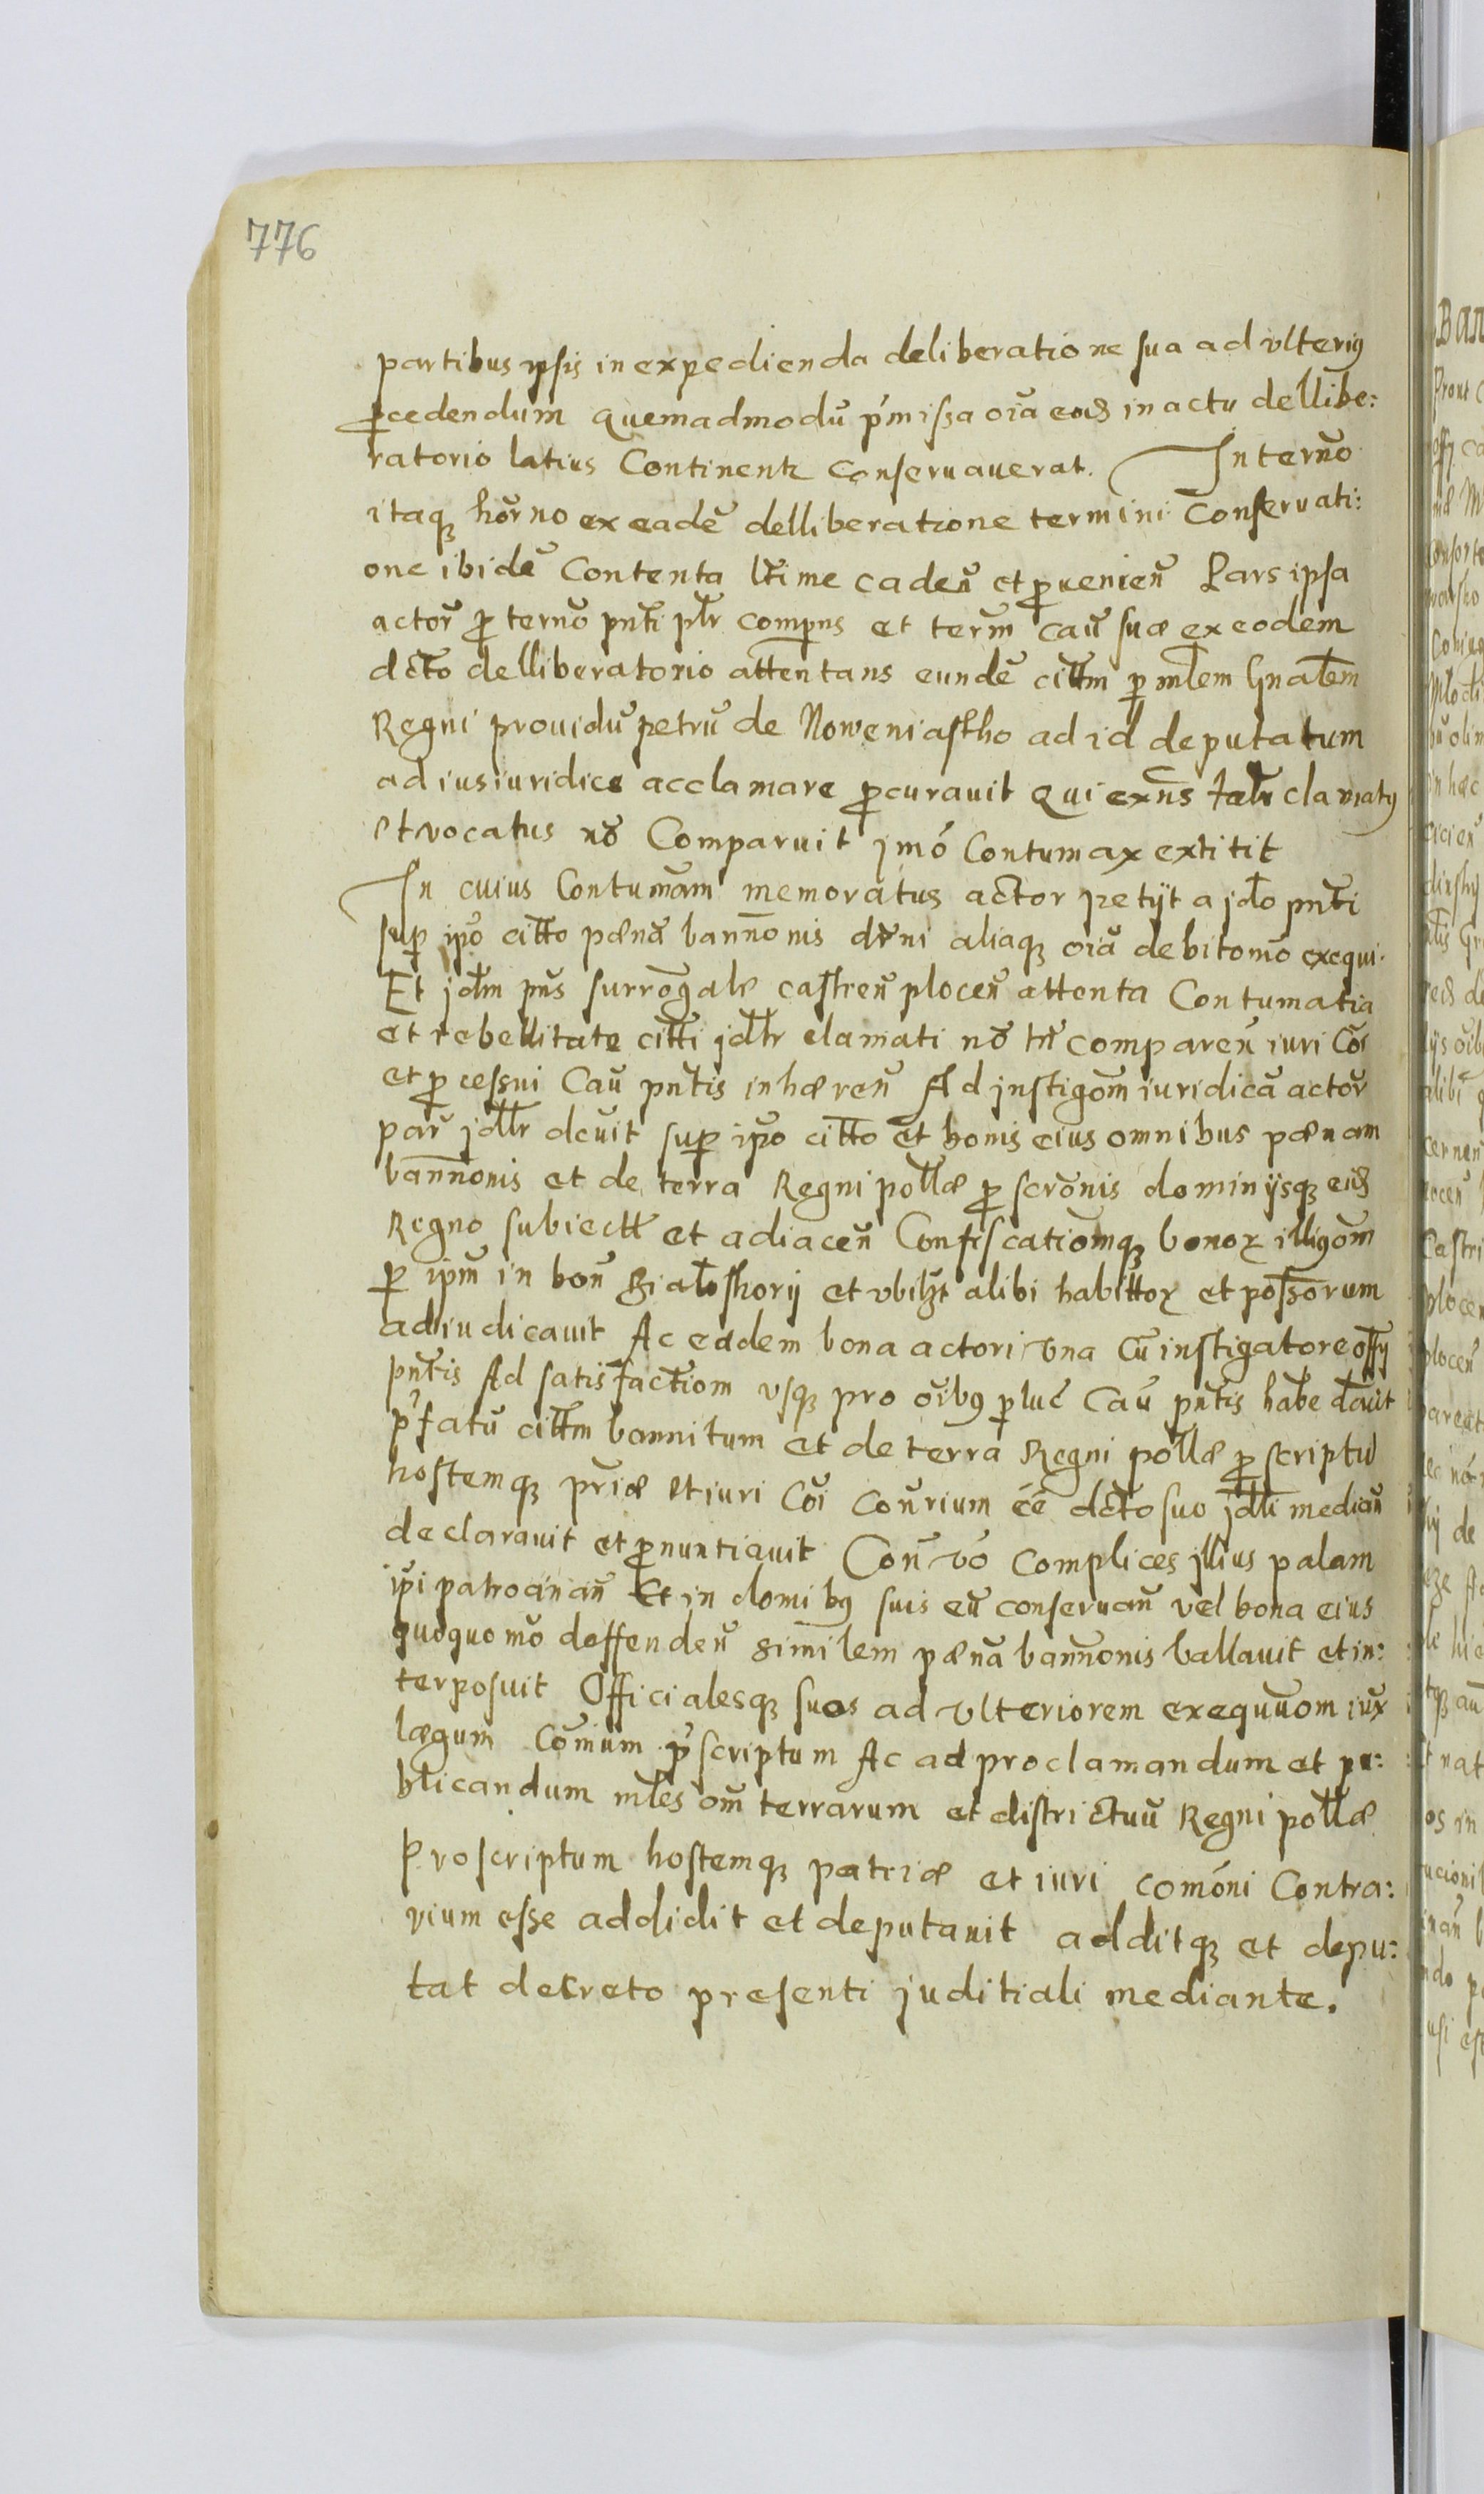 776
partibus ipsis in expedienda deliberatione sua ad vlterig
pcedendum quemadmodū p̃missa oīa eođ in actu dellibe:
ratorio latius Continentr conseruauerat. In termō
itaqꝫ hōrno ex eadē delliberatione termini Conseruati:
one ibidē Contenta ltīme cadeñ et ꝓuenieñ Pars ipsa
actor̄ ꝓ termō pn̄ti pl̄r comp̄ns et term̄ cau͂ suæ ex eodem
dc̄to delliberatorio attentans eundē citt̄m p ml̄em gn̄al̄em
Regni prouidū petrū de Nowemiastho ad id deputatum
ad ius iuridice acclamare ꝓcurauit qui ex̄ns clamatꝯ
et vocatus nō Comparuit jmó Contumax extitit
In cuius Contumām memoratus actor petijt a jdō pn̄ti
sup ip̄o citt̄o pænā bann̄onis dēni aliaqꝫ oīa debitomō exequi.
Et jdm̄ pn̄s surrog̃ale castreñ ploceñ attenta Contumatia
et rebellitate citt̄i jdl̄r clamati nō tn̄ compareñ iuri Cōi
et ꝓcessui Cau͂ pn̄tis inhæreñ Ad jnstigōm iuridicā actor̄
par̄ jdl̄r dcuit sup ip̄o citt̄o et bonis eius omnibus pænam
bann̄onis et de terra Regni poll̄æ ꝓscrōnis dominijsqꝫ eiđ
Regno subiectt̄ et adiaceñ Confiscatiomqꝫ bonoꝝ illigōm
p ip̄m in boñ Białoskorij et vbilꝫt alibi habittoꝝ et possorum
adiudicauit Ac eadem bona actori vna cū instigatore offij
pn̄tis Ad satisfactiom vsqꝫ pro oībꝯ p luc̄ Cau͂ pn̄tis habē dauit
p̃fatū citt̄m bannitum et de terra Regni poll̄æ ꝓscriptū
hostemqꝫ pr̄iæ et iuri Cōi cōn̄rium ēē dc̄to suo jdl̄i mediañ
declarauit et ꝓnuntiauit Coñ vō Complices jllius palam
ip̄i patrocinañ Et in domibꝯ suis eū conseruañ vel bona eius
quoquomō deffendeñ similem pænā bann̄onis vallauit et in:
terposuit Officialesqꝫ suos ad vlteriorem exequuōm iux
lægum Cōmum p̃scriptum Ac ad proclamandum et pu:
blicandum ml̄es om̄ terrarum et districtuū Regni poll̄æ
Proscriptum hostemqꝫ patriæ et iuri comōni Contra:
rium esse addidit et deputauit additqꝫ et depu:
tat decreto presenti juditiali mediante.